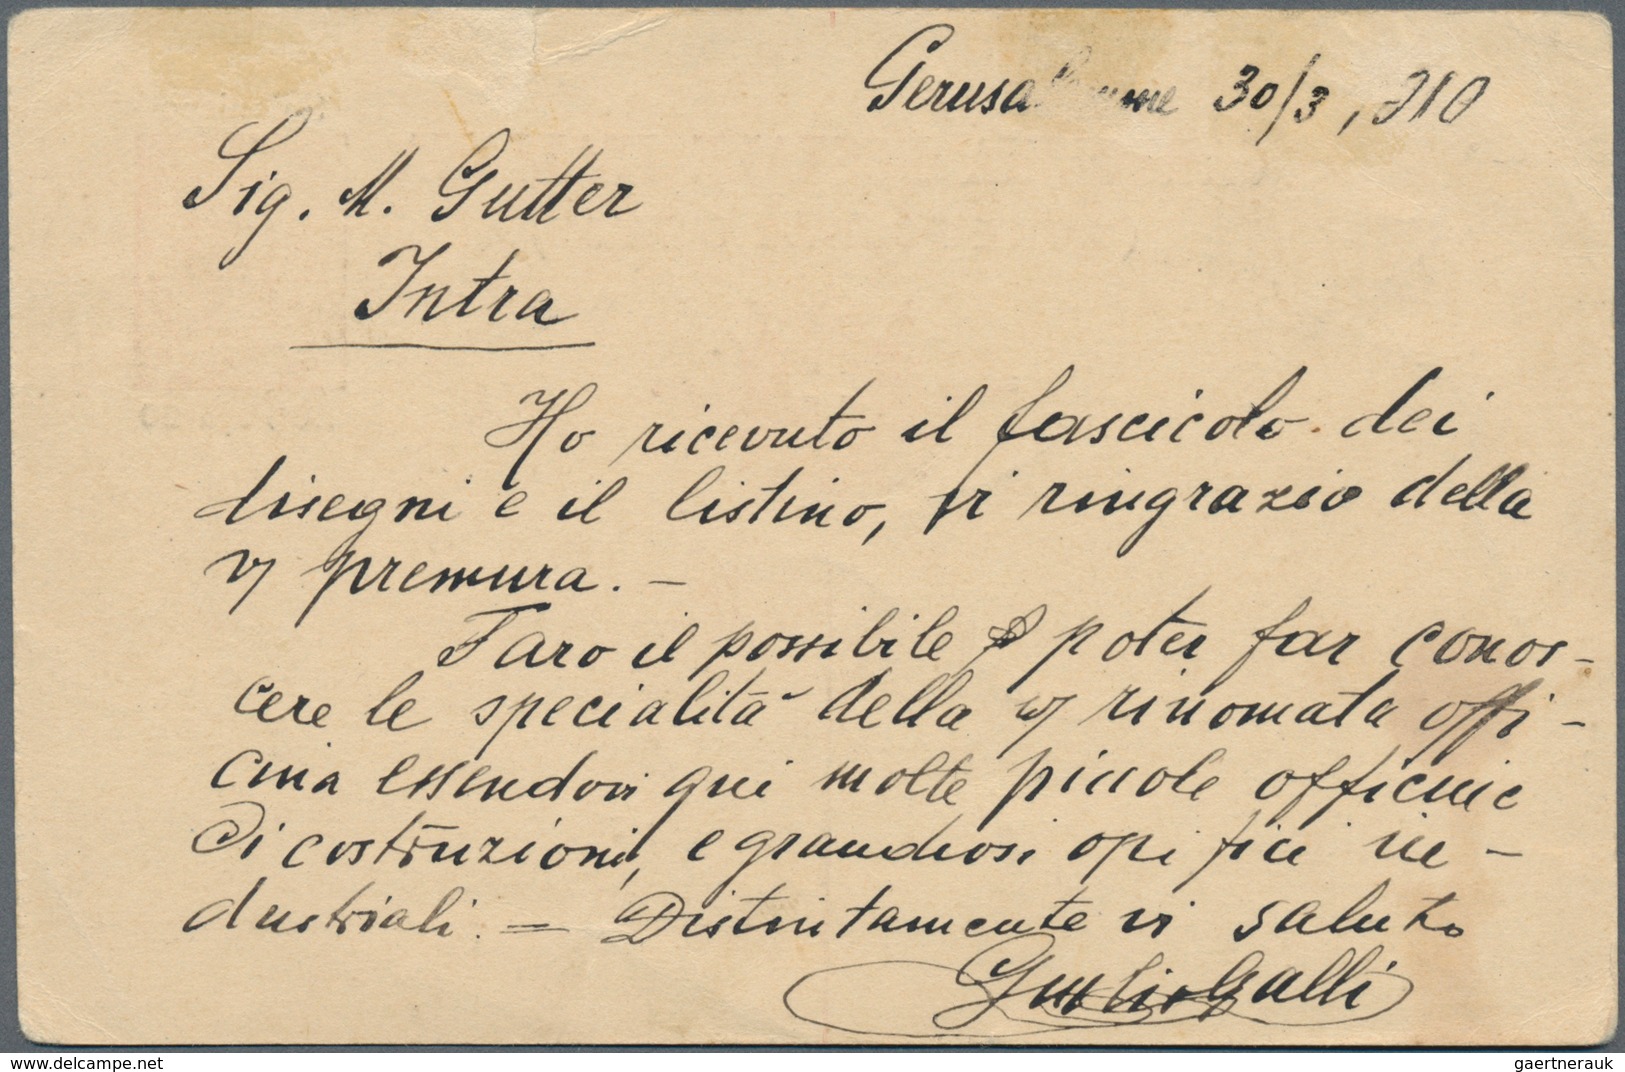 Gerusalemme 30/3, 910
Sig. M. Gutter
Intra
Ho ricevuto il fascicolo dei
disegni e il listino, vi ringrazio della
v/ premura. -
Faro il possibile poter far conos-
cere le specialità della v/ rinomata offi-
cina essendovi qui molte piccole officine
di costruzioni, e grandiosi opifici in-
dustriali. = Distintamente vi saluto
Giulio Galli
gaertnerauk / Delcampe.net